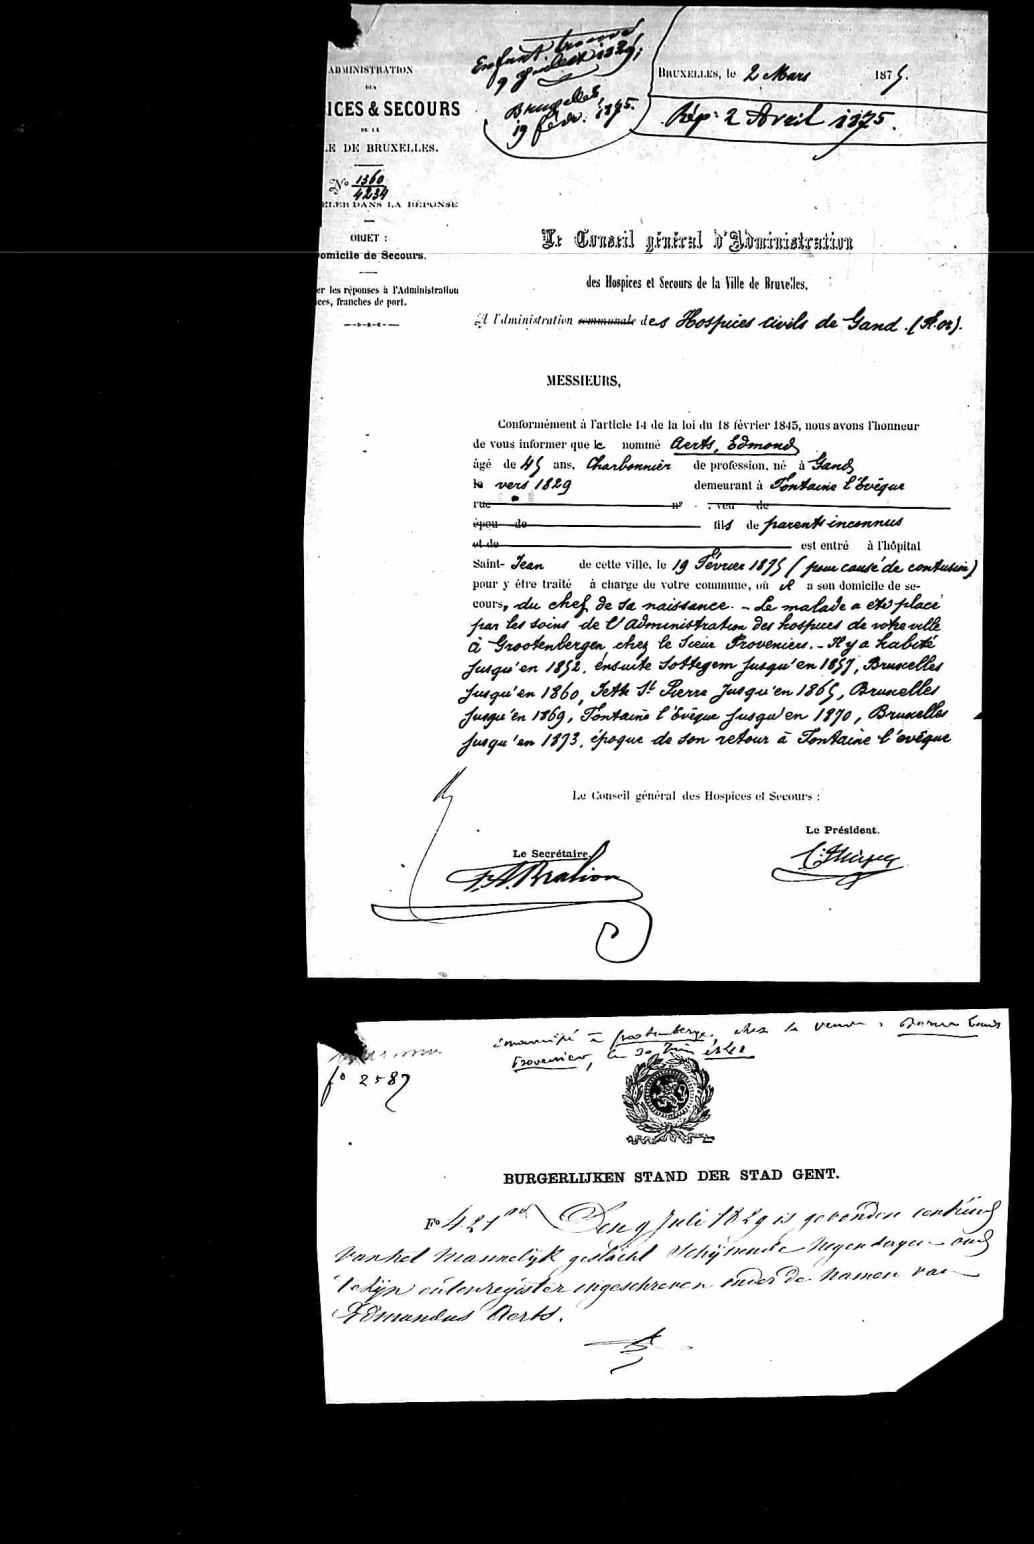 ADMINISTRATION
DES
ICES & SECOURS
DE LA
LE DE BRUXELLES.
No 1360
4234
ELER DANS LA RÉPONSE
OBJET :
omicile de Secours.
er les réponses à l'Administration
ces, franches de port.
Enfant trouvé
9 juillet 1829;
Bruxelles,
19 févr. 1875.
BRUXELLES, le 2 Mars 1875.
Rép: 2 Avril 1875.
Le Conseil général d'Administration
des Hospices et Secours de la Ville de Bruxelles,
A l'dministration communale des Hospices civils de Gand. (Fl. or).
MESSIEURS,
Conformément à l'article 14 de la loi du 18 février 1845, nous avons l'honneur
de vous informer que le nommé Aerts, Edmond
âgé de 45 ans, Charbonnier de profession, né à Gand
le vers 1829 demeurant à Fontaine l'Evêque
rue no , veu de
épou de fils de parents inconnus
et de est entré à l'hôpital
Saint-Jean de cette ville, le 19 Février 1875 (pour cause de contusion)
pour y être traité à charge de votre commune, où il a son domicile de se-
cours, du chef de sa naissance. - Le malade a été placé
par les soins de l'Administration des hospices de votre ville
à Grootenbergen chez le Sieur Proveniers. - Il y a habité
jusqu'en 1852, ensuite Sottegem jusqu'en 1857, Bruxelles
jusqu'en 1860, Jette St Pierre jusqu'en 1865, Bruxelles
jusqu'en 1869, Fontaine l'Evêque jusqu'en 1870, Bruxelles
jusqu'en 1873, époque de son retour à Fontaine l'evêque
Le Conseil général des Hospices et Secours :
Le Président.
Le Secrétaire,
émancipé à Grootenberge, chez la veuve
Provenier, le 30 Juin
fo 2587
BURGERLIJKEN STAND DER STAD GENT.
Fo 421 Den 9 Juli 1829 is gevonden een kind
van het mannelijk geslacht schijnende negen dagen oud
te zijn en ten register ingeschreven onder de namen van
Edmandus Aerts.